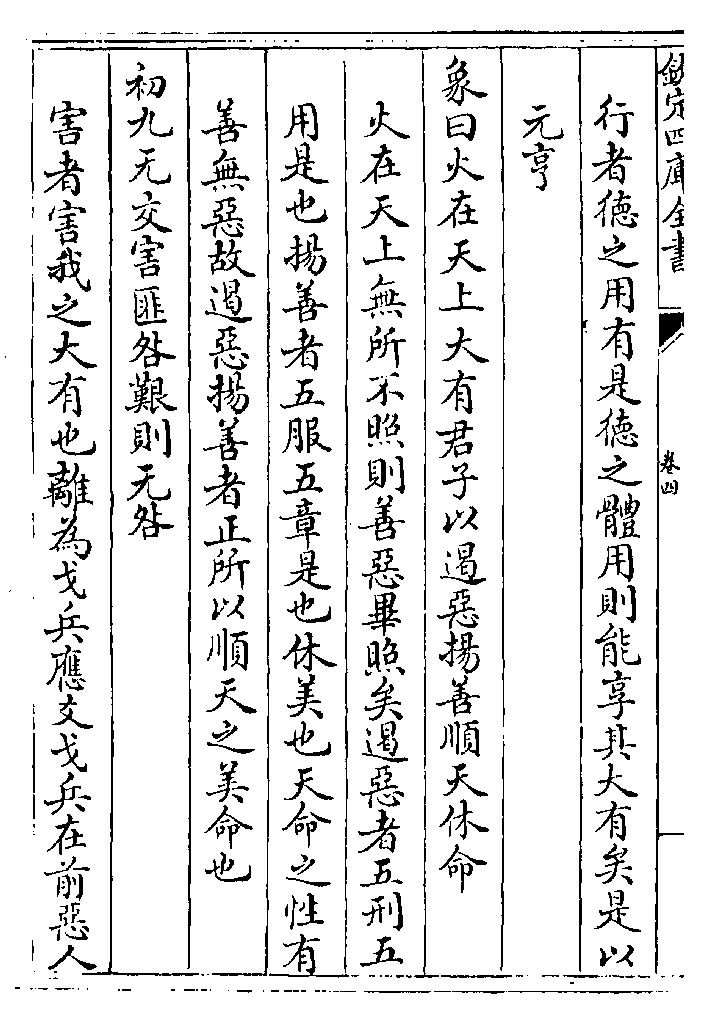 欽定四庫全書
卷四
行者德之用有是德之體用則能享其大有矣是以
元亨
象曰火在天上大有君子以遏惡揚善順天休命
火在天上無所不照則善惡畢照矣遏惡者五刑五
用是也揚善者五服五章是也休美也天命之性有
善無惡故遏惡揚善者正所以順天之美命也
初九无交害匪咎艱則无咎
害者害我之大有也離為戈兵應爻戈兵在前惡人